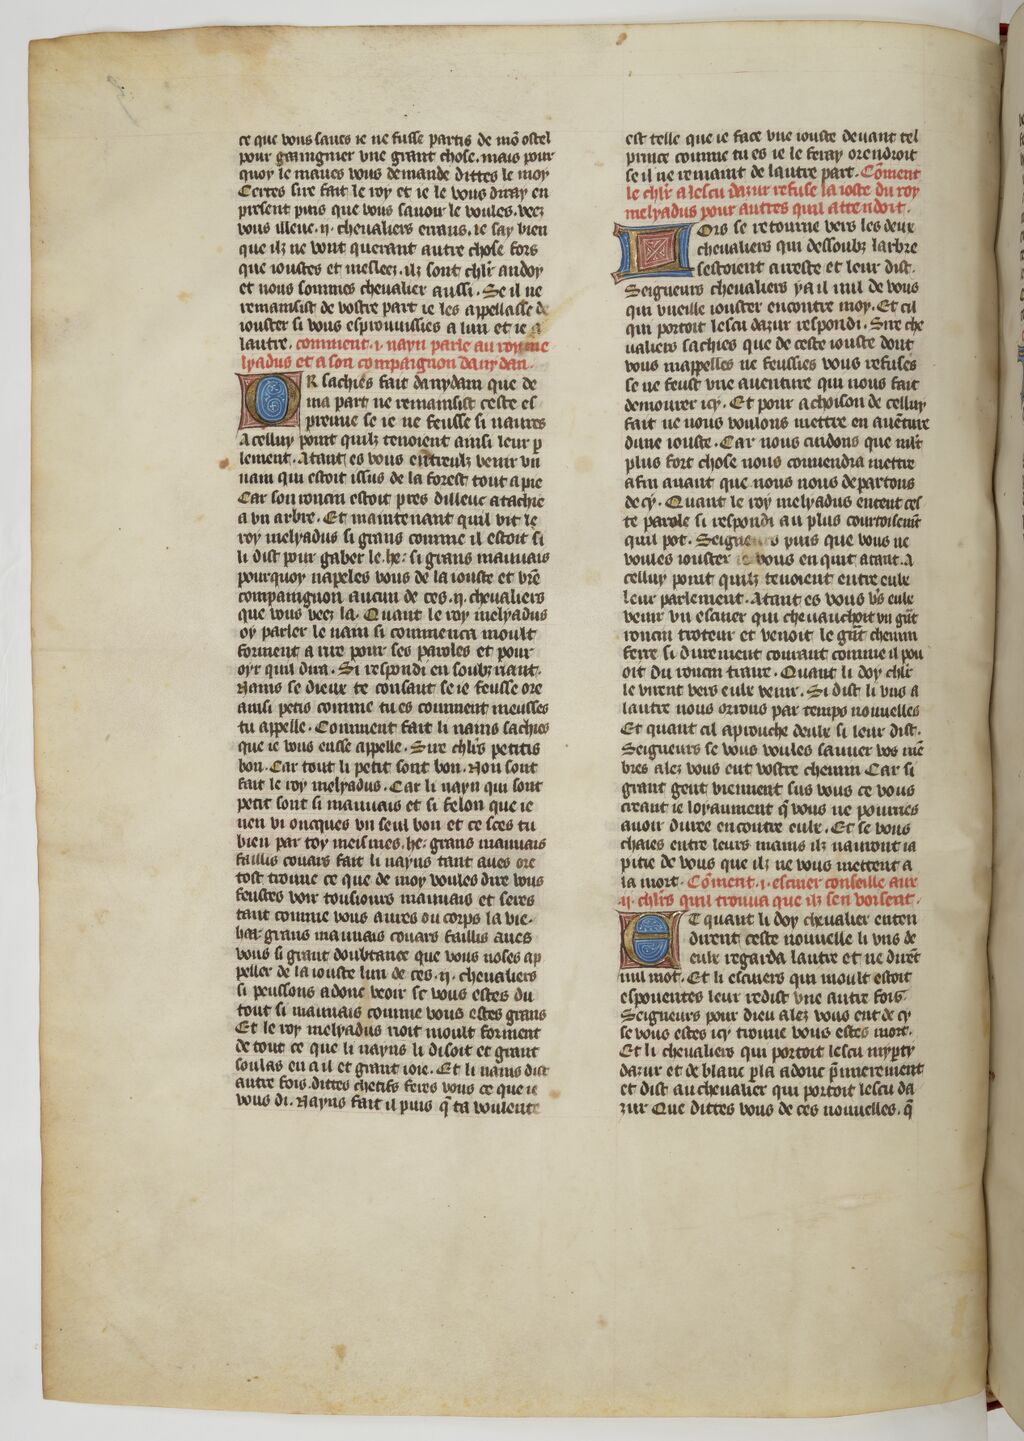 ce que vous saues ie ne fusse partis de mō ostel
pour gaaingnier vne grant chose. mais pour
quoy le maues vous demande dittes le moy
Certes sire fait le roy et ie le vous diray en
present puis que vous sauoir le voules. veez
vous illeuc .ij. cheualiers errans. ie say bien
que ilz ne vont querant autre chose fors
que ioustes et meslees. ilz sont chlr̄ andoy
et nous sommes cheualier aussi. Se il ne
remansist de vostre part ie les appellasse de
iouster si vous esprouuissies a lun et ie a
lautre. comment .i. nayn parle au roy me
lyadus et a son compaignon danydan.
OR sachies fait danydam que de
ma part ne remansist ceste es
preuue se ie ne feusse si naures
A celluy point quilz tenoient ainsi leur p
lement. Atant es vous entreulz venir vn
nam qui estoit issus de la forest tout a pie
Car son roncin estoit pres dilleuc atachie
a vn arbre. Et maintenant quil vit le
roy melyadus si grans comme il estoit si
li dist pour gaber le. he: si grans mauuais
pourquoy napeles vous de la iouste et vr̄e
compaingnon aucun de ces .ij. cheualiers
que vous veez la. Quant le roy melyadus
oy parler le nam si commenca moult
forment a rire pour ses paroles et pour
oyr quil dira. Si respondi en soubz riant.
Nains se dieux te consaut se ie feusse ore
ainsi petis comme tu es comment meusses
tu appelle. Comment fait li nains sachies
que ie vous eusse appelle. Sire chlr̄s petitis
bon. Car tout li petit sont bon. Non sont
fait le roy melyadus. Car li nayn qui sont
petit sont si mauuais et si felon que ie
nen vi oncques vn seul bon et ce sces tu
bien par toy meismes. he: grans mauuais
faillis couars fait li nayns tant aues ore
tost trouue ce que de moy voules dire vous
feustes voir tousiours mauuais et seres
tant comme vous aures ou corps la vie.
ha: grans mauuais couars faillis aues
vous si grant doubtance que vous noses ap
peller de la iouste lun de ces .ij. cheualiers
si peussons adonc veoir se vous estes du
tout si mauuais comme vous estes grans
Et le roy melyadus rioit moult forment
de tout ce que li nayns li disoit et grant
soulas en a il et grant ioie. Et li nains dist
autre fois. dittes chetifs feres vous ce que ie
vous di. Nayns fait il puis q̄ ta voulente
est telle que ie face vne iouste deuant tel
prince comme tu es ie le feray orendroit
se il ne remaint de lautre part. Cōment
le chlr̄ a lescu dazur refuse la ioste du roy
melyadus pour autres quil attendoit.
LOrs se retourne vers les deux
cheualiers qui dessoubz larbre
sestoient arreste et leur dist.
Seigneurs cheualiers y a il nul de vous
qui vueille iouster encontre moy. Et cil
qui portoit lescu dazur respondi. Sire che
ualiers sachies que de ceste iouste dont
vous mappelles ne feussies vous refuses
se ne feust vne auenture qui nous fait
demourer icy. Et pour achoison de celluy
fait ne nous voulons mettre en auēture
dune iouste. Car nous cuidons que mlt̄
plus fort chose nous conuendra mettre
a fin auant que nous nous departons
de cy. Quant le roy melyadus entent ces
te parole si respondi au plus courtoisemt̄
quil pot. Seigneurs puis que vous ne
voules iouster ie vous en quit atant. A
celluy point quilz tenoient entre eulx
leur parlement. Atant es vous v̄s eulx
venir vn escuier qui cheuauchoit vn grāt
roncin troteur et venoit le grāt chemin
ferre si durement courant comme il pou
oit du roncin traire. Quant li doy chlr̄
le virent vers eulx venir. Si dist li vns a
lautre nous orrons par temps nouuelles
Et quant cil aprouche deulx si leur dist.
Seigneurs se vous voules sauuer vos mē
bres alez vous ent vostre chemin Car si
grant gent viennent sus vous ce vous
creant ie loyaument q̄ vous ne pourries
auoir duree encontre eulx. Et se vous
chaies entre leurs mains ilz nauront ia
pitie de vous que ilz ne vous mettent a
la mort. Cōment .i. escuier conseille aux
.ij. chlr̄s quil trouua que ilz sen voisent.
ET quant li doy cheualier enten
dirent ceste nouuelle li vns de
eulx regarda lautre et ne dirēt
nul mot. Et li escuiers qui moult estoit
espouentes leur redist vne autre fois.
Seigneurs pour dieu alez vous ent de cy
se vous estes icy trouue vous estes mort.
Et li cheualiers qui portoit lescu myp̄ty
dazur et de blanc p̄la adonc p̄mierement
et dist au cheualier qui portoit lescu da
zur Que dittes vous de ces nouuelles. q̄